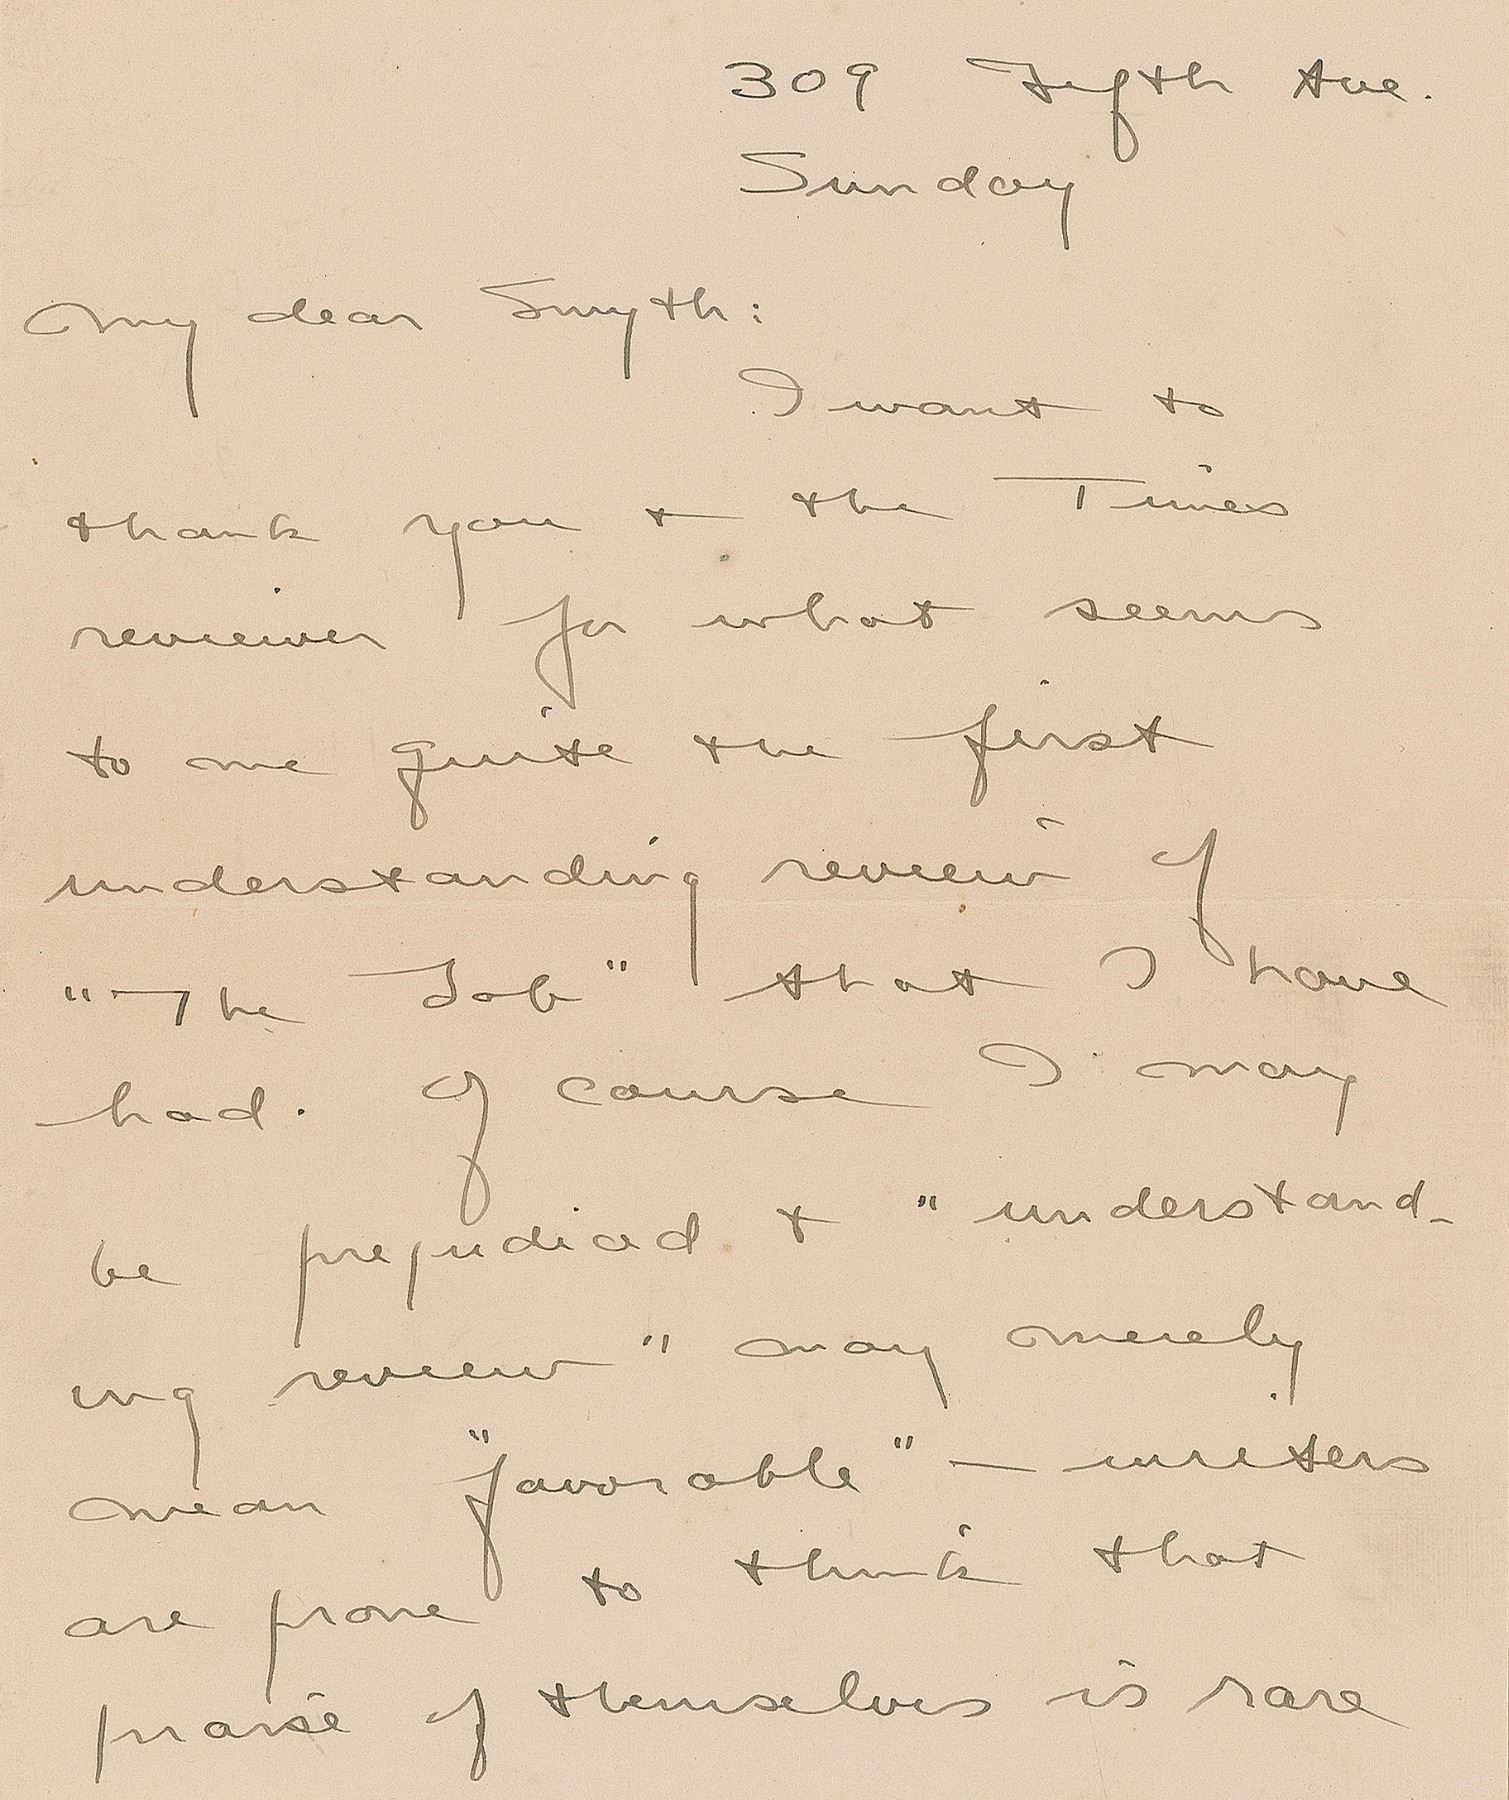 309 Fifth Ave.
Sunday
My dear Smyth:
I want to
thank you + the Times
reviewer for what seems
to me quite the first
understanding review of
"The Job" that I have
had. Of course I may
be prejudiced + "understand-
ing review" may merely
mean "favorable" — writers
are prone to think that
praise of themselves is rare